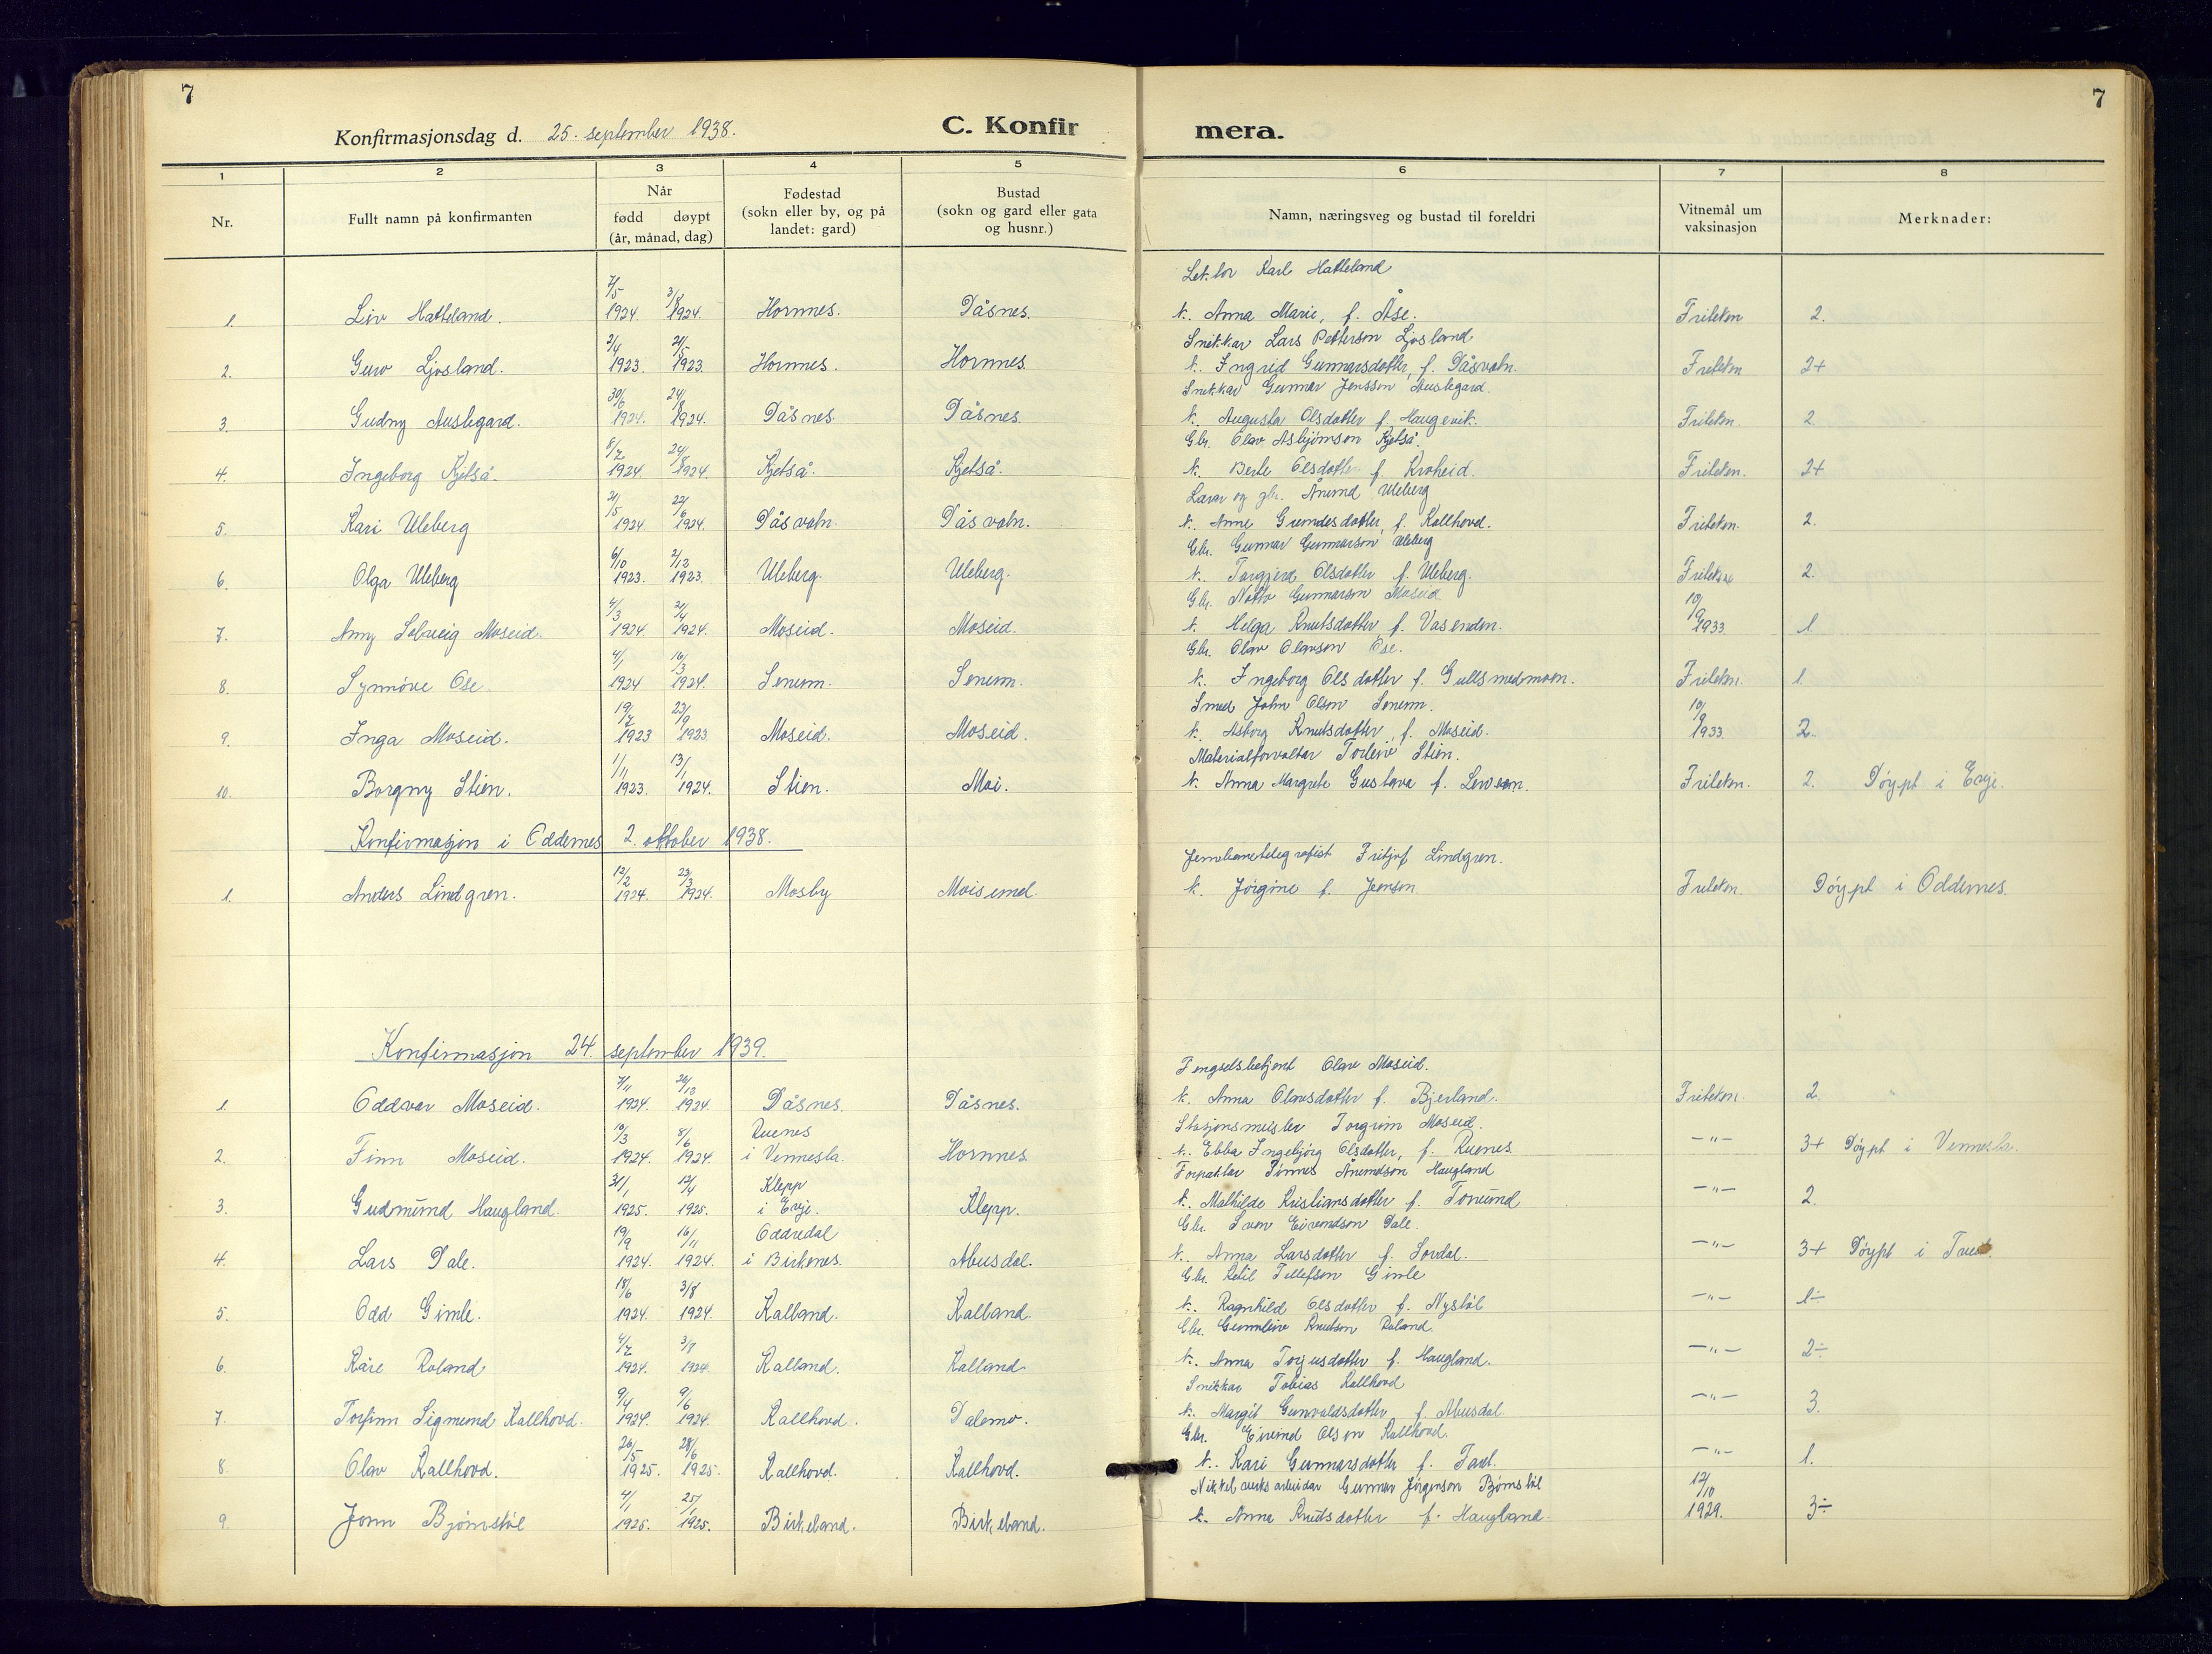 7
Konfirmasjonsdag d. 25. september 1938.
C. Konfirmera.
7
1 2 3 4 5 6 7 8
Nr.
Fullt namn på konfirmanten
Når
fødd døypt
(år, månad, dag)
Fødestad
(sokn eller by, og på
landet: gard)
Bustad
(sokn og gard eller gata
og husnr.)
Namn, næringsveg og bustad til foreldri
Vitnemål um
vaksinasjon
Merknader:
Lektor Karl Hatteland
1. Liv Hatteland. 7/5 1924. 3/8 1924. Hornnes. Dåsnes. k. Anna Marie, f. Åse. Friteken 2.
Snekkar Lars Petterson Ljosland
2. Guro Ljosland. 2/4 1923. 21/5 1923. Hornnes. Hornnes. k. Ingrid Gunnarsdotter, f. Dåsvatn. Friteken 2+
Snekkar Gunnar Jensson Austegard.
3. Gudny Austegard. 30/6 1924. 24/8 1924. Dåsnes. Dåsnes. k. Augusta Olsdotter f. Haugevik. Friteken. 2.
Gbr. Olav Asbjørnson Kjetså.
4. Ingeborg Kjetså. 8/7 1924. 24/8 1924. Kjetså. Kjetså. k. Berte Olsdotter f. Kroheid. Friteken. 2+
Lærar og gbr. Ånund Uleberg
5. Kari Uleberg 21/5 1924. 22/6 1924. Dåsvatn. Dåsvatn. k. Anne Gumdesdotter, f. Kallhovd. Friteken. 2.
Gbr. Gunnar Gunnarson Uleberg
6. Olga Uleberg 6/10 1923. 2/12 1923. Uleberg. Uleberg. k. Torgjerd Olsdotter f. Uleberg. Friteken 2.
Gbr. Notto Gunnarson Moseid
7. Anny Solveig Moseid. 4/3 1924. 21/4 1924. Moseid. Moseid. k. Helga Knutsdotter f. Vasenden. 10/9 1933 1.
Gbr. Olav Olavson Ose.
8. Synnöve Ose. 4/1 1924 16/3 1924. Senum. Senum. k. Ingeborg Olsdotter f. Gullsmedmoen. Friteken. 1.
Smed John Olson Senum.
9. Inga Moseid. 19/7 1923 23/9 1923 Moseid. Moseid. k. Asborg Knutsdotter, f. Moseid. 10/9 1933 2.
Materialforvaltar Torleiv Stien.
10. Borgny Stien. 1/11 1923. 13/1 1924. Stien. Moi. k. Anna Margrete Gustava f. Friteken. 2. Döypt i Evje.
Konfirmasjon i Oddernes 2. oktober 1938.
Jernbanetelegrafist Fritjof Lindgren.
1. Anders Lindgren. 12/2 1924. 23/3 1924. Mosby Moisund. k. Jörgine f. Jensen Friteken. Döypt i Oddernes.
Konfirmasjon 24. september 1939.
Fengselsbetjent Olav Moseid.
1. Oddvar Moseid. 7/11 1924. 26/12 1924. Dåsnes. Dåsnes. k. Anna Olavsdotter f. Bjerland. Friteken. 2.
Stasjonsmeister Torgrim Moseid.
2. Finn Moseid. 10/3 1924. 8/6 1924. Ruenes i Vennesla. Hornnes. k. Ebba Ingebjörg Olsdotter, f. Ruenes. —"— 3+ Döypt i Vennesla.
Forpaktar Tönnes Ånundson Haugland
3. Gudmund Haugland. 31/1 1925. 12/4 1925. Klepp i Evje. Klepp. k. Mathilde Kristiansdotter f. —"— 2.
Gbr. Sven Eivendson Dale.
4. Lars Dale. 19/9 1924. 16/11 1924. Oddedal i Birkenes. Abusdal. k. Anna Larsdotter f. Sordal. —"— 3+ Döypt i
Gbr. Ketil Tellefson Gimle
5. Odd Gimle. 18/6 1924. 3/8 1924. Kalland. Kalland. k. Ragnhild Olsdotter f. Nystöl —"— 1÷
Gbr. Gunnleiv Knutson Roland.
6. Kåre Roland 4/7 1924. 3/8 1924. Kalland. Kalland. k. Anna Torjusdotter f. Haugland. —"— 2÷
Snekkar Tobias Kallhovd
7. Torfinn Sigmund Kallhovd. 9/4 1924. 9/6 1924. Kallhovd. Dalemo. k. Margit Gunvaldsdotter f. Abusdal. —"— 3.
Gbr. Eivind Olson Kallhovd.
8. Olav Kallhovd. 26/5 1925. 28/6 1925. Kallhovd. Kallhovd. k. Kari Gunnarsdotter f. —"— 1.
Nikkelverksarbeidar Gunnar Jörgenson Björnstöl
9. Jorun Björnstöl 4/1 1925. 25/1 1925. Birkeland. Birkeland. k. Anna Knutsdotter f. Haugland. 12/10 1929. 3÷